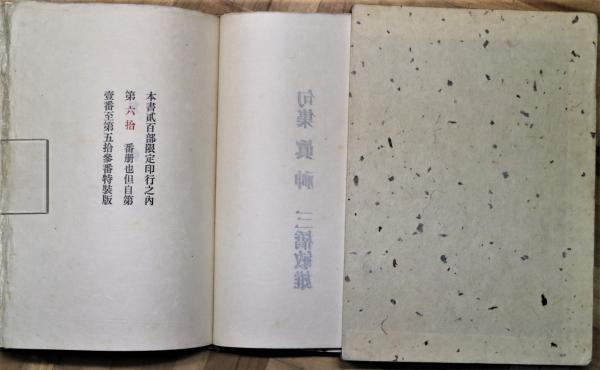 本書貳百部限定印行之內
第六拾 番册也但自第
壹番至第五拾參番特裝版
句集 眞神 三橋敏雄